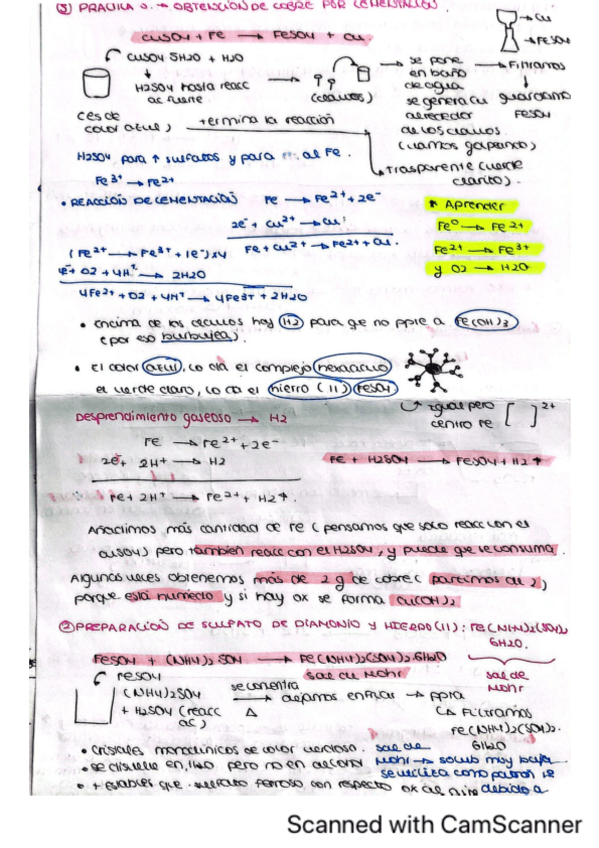 ③ PRACTICA 3. → OBTENCIÓN DE COBRE POR CEMENTACIÓN.
→ Cu
→ FeSO4
CuSO4 + Fe → FeSO4 + Cu
CuSO4 5H2O + H2O
H2SO4 hasta reacc
ac. fuerte.
(clavos)
→ se pone
en baño
de agua
se genera Cu
alrededor
de los clavos.
(vamos golpeando)
→ Filtramos
guardamos
FeSO4
(es de
color azul)
termina la reacción
Trasparente (verde
clarito).
H2SO4 para ↑ sulfatos y para al Fe.
Fe3+ → Fe2+
• REACCIÓN DE CEMENTACIÓN Fe → Fe2+ + 2e-
2e- + Cu2+ → Cu
Fe + Cu2+ → Fe2+ + Cu.
* Aprender
Fe0 → Fe2+
Fe2+ → Fe3+
y O2 → H2O
(Fe2+ → Fe3+ + 1e-) x4
4e- + O2 + 4H+ → 2H2O
4Fe2+ + O2 + 4H+ → 4Fe3+ + 2H2O
• encima de los clavos hay H2 para que no ppte a Fe(OH)3
(por eso burbujea).
• El color azul, lo da el complejo hexaacuo
el verde claro, lo da el hierro (II) FeSO4
igual pero
centro Fe [ ]2+
Desprendimiento gaseoso → H2
Fe → Fe2+ + 2e-
2e- + 2H+ → H2
Fe + 2H+ → Fe2+ + H2↑.
Fe + H2SO4 → FeSO4 + H2↑
Añadimos más cantidad de Fe (pensamos que solo reacc con el
CuSO4) pero también reacc con el H2SO4, y puede que se consuma.
Algunas veces obtenemos más de 2 g de cobre (partimos de 2)
porque está húmedo y si hay ox se forma Cu(OH)2
② PREPARACIÓN DE SULFATO DE DIAMONIO Y HIERRO (II): Fe(NH4)2(SO4)2
6H2O.
FeSO4 + (NH4)2SO4 → Fe(NH4)2(SO4)2.6H2O
sal de Mohr
sal de
Mohr
FeSO4
(NH4)2SO4
+ H2SO4 (reacc
ac)
se concentra
Δ
dejamos enfriar → ppta
Filtramos
Fe(NH4)2(SO4)2.
6H2O
• Cristales monoclínicos de color verdoso. sal de
• se disuelve en H2O pero no en alcohol Mohr → solub muy baja
se utiliza como patrón
• + estables que sulfato ferroso con respecto ox al aire debido a
Scanned with CamScanner